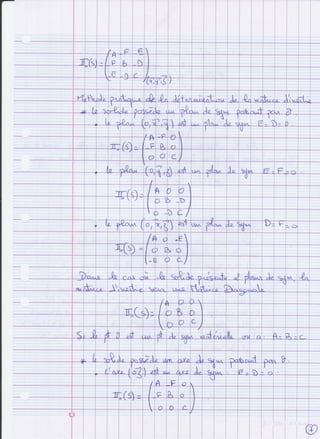 II₀(S) = ( A -F -E
-F B -D
-E -D C )(x,y,z)
Méthode pratique de la détermination de la matrice d'inertie
* le solide possède un plan de sym passant par O.
• le plan (O, x, y) est un plan de sym E = D = 0
II₀(S) = ( A -F 0
-F B 0
0 0 C )
• le plan (O, y, z) est un plan de sym E = F = 0
II₀(S) = ( A 0 0
0 B -D
0 -D C )
• le plan (O, x, z) est un plan de sym D = F = 0
II₀(S) = ( A 0 -E
0 B 0
-E 0 C )
Dans le cas où le solide présente 2 plans de sym, la
matrice d'inertie sera une Matrice Diagonale
II₀(S) = ( A 0 0
0 B 0
0 0 C )
Si le pt O est un pt de sym matérielle on a A = B = C
* le solide possède un axe de sym passant par O.
• l'axe (OZ) est un axe de sym : E = D = 0
II₀(S) = ( A -F 0
-F B 0
0 0 C )